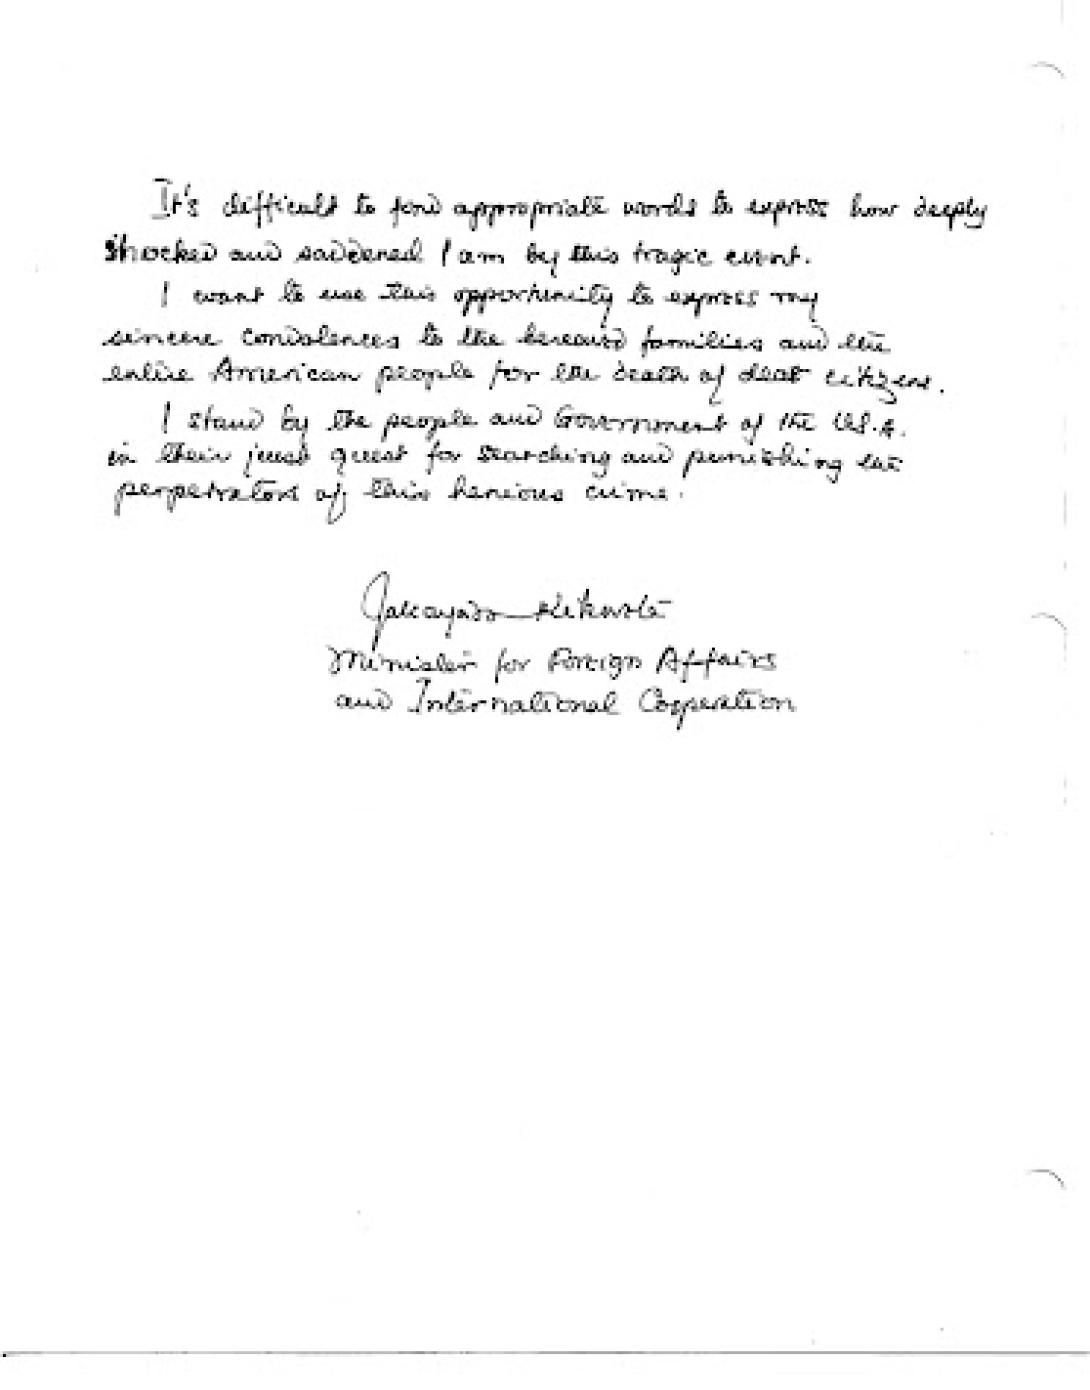 It's difficult to find appropriate words to express how deeply
shocked and saddened I am by this tragic event.
I want to use this opportunity to express my
sincere condolences to the bereaved families and the
entire American people for the death of dear citizens.
I stand by the people and Government of the U.S.A.
in their just quest for searching and punishing the
perpetrators of this henious crime.
Minister for Foreign Affairs
and International Cooperation